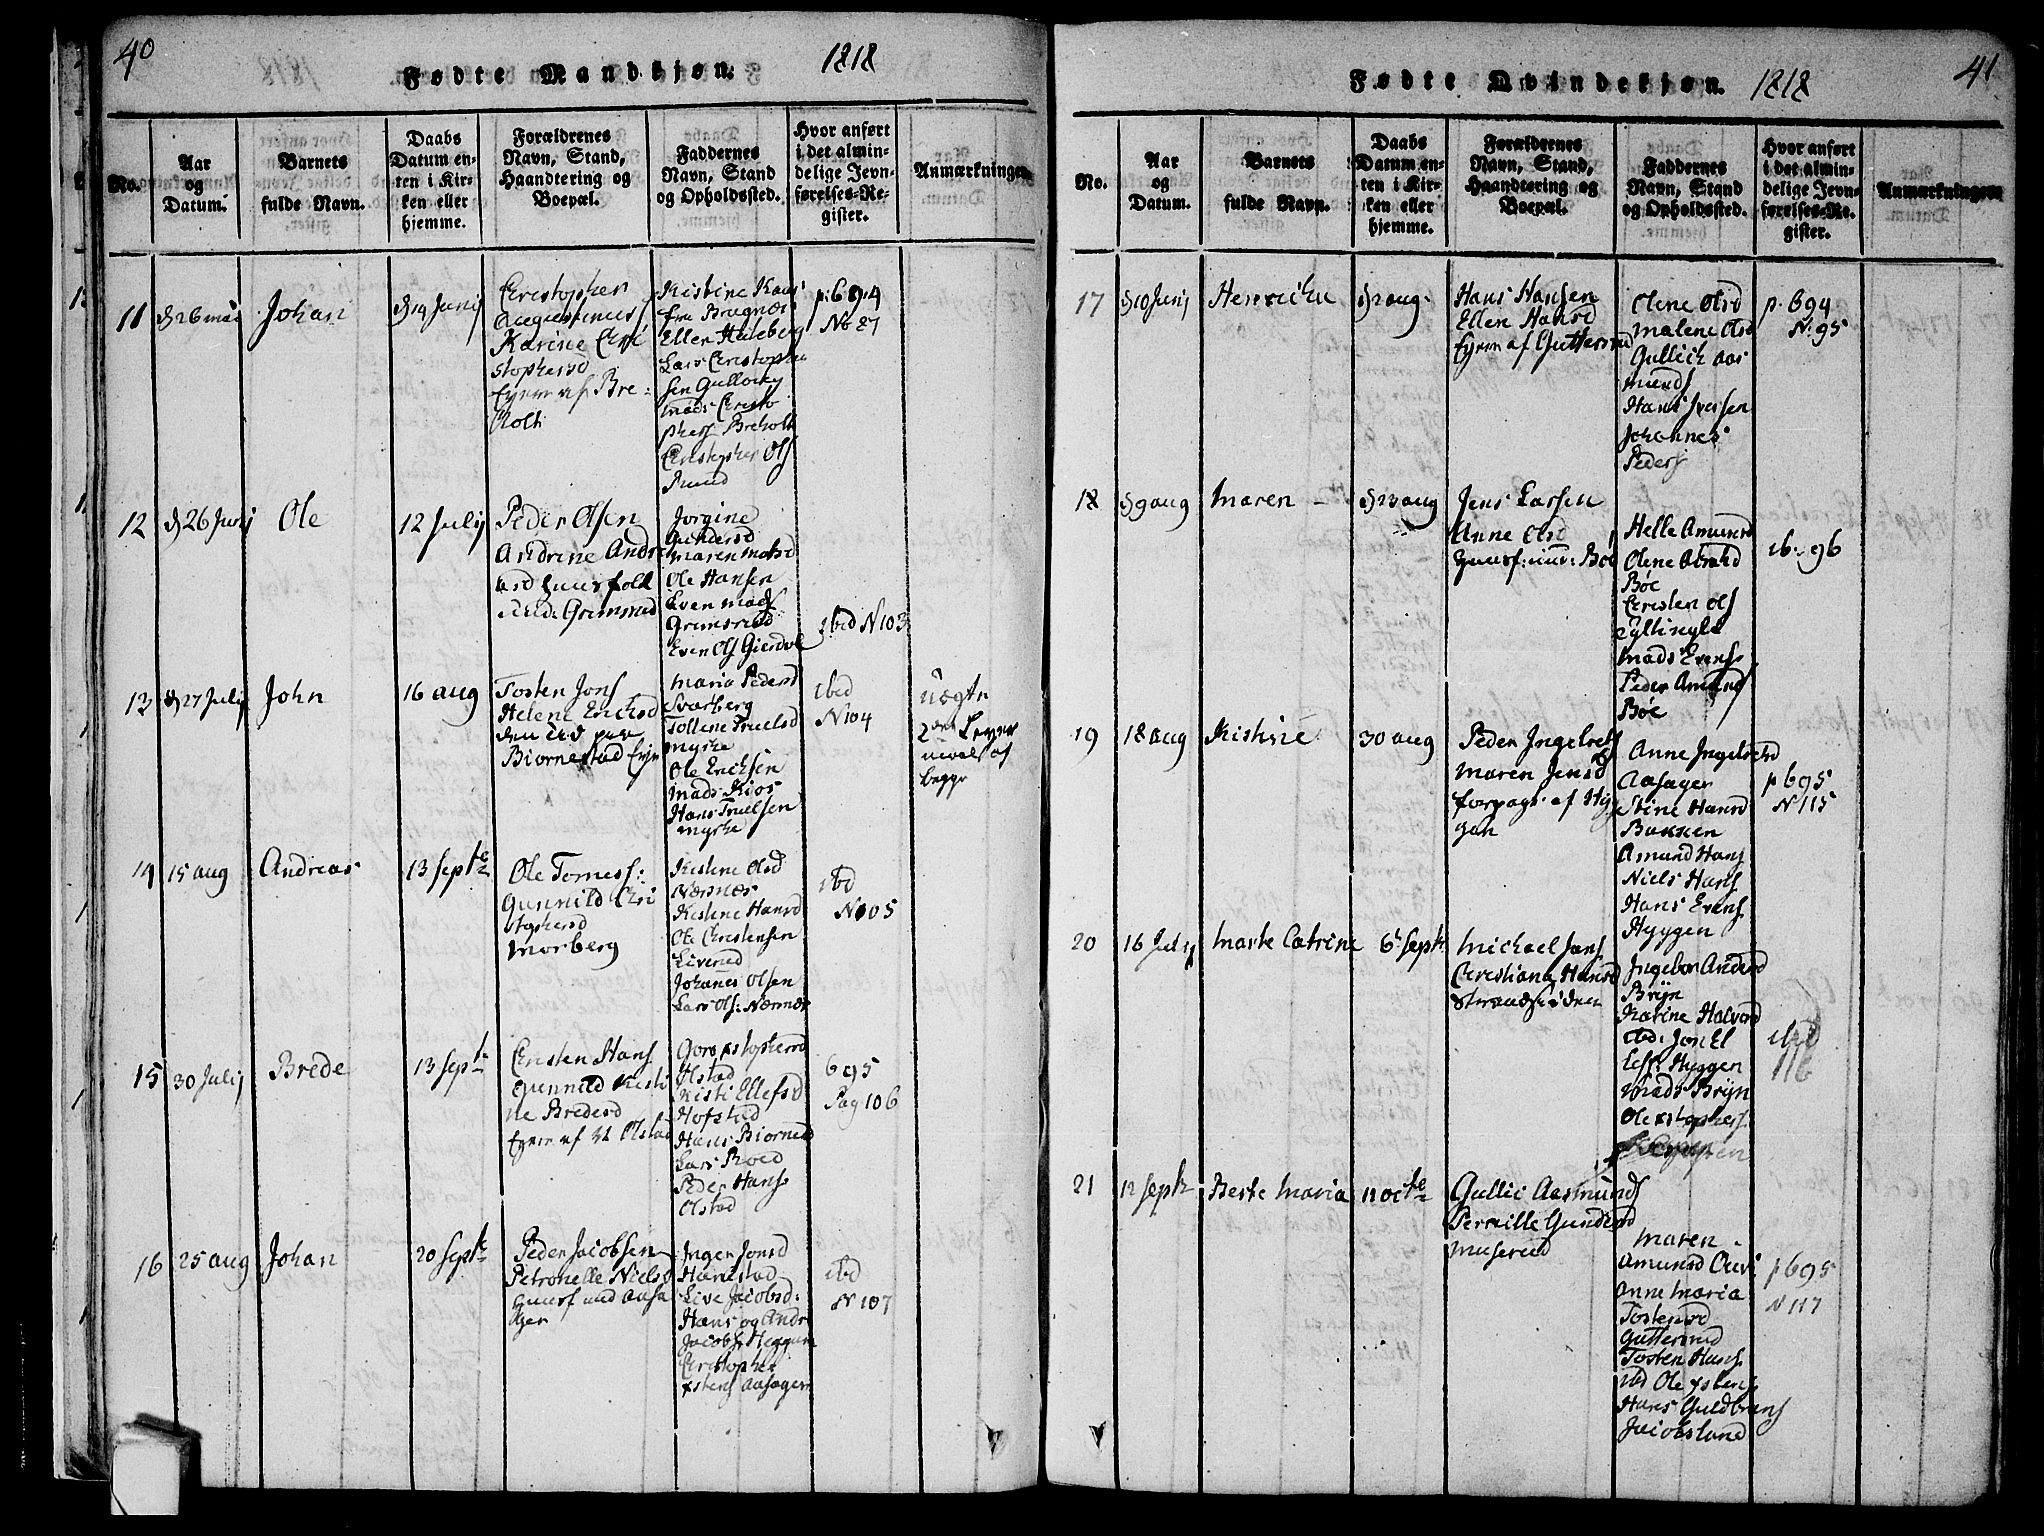 40
Fødte Mandkjøn.
1818
No.
Aar
og
Datum.
Barnets
fulde Navn.
Daabs
Datum en-
ten i Kir-
ken eller
hjemme.
Forældrenes
Navn, Stand,
Haandtering og
Boepæl.
Faddernes
Navn, Stand
og Opholdssted.
Hvor anført
i det almin-
delige Jevn-
førelses-Re-
gister.
Anmærkninger
11
26 mai
Johan
14 Junij
Cristopher
Karine Cri
stophersd
Eyere af Bre-
holt
Kistine Kaas
fra Bragnæs
Ellen Haneberg
Lars Cristophe
sen Gulloug
mads Cristo
phers Breholt
Cristopher Ols
Ruud
p: 694
No 87
12
26 Junij
Ole
12 Julij
Peder Olsen
Andrine Andre
asd huusfolk
Grimsrud
Jorgine
Gundersd
maren matsd
Ole Hansen
Even mads
Grimsrud
Even Ols Gierdal
ibid N 103
13
27 Julij
John
16 aug
Tosten Jons
Helene Ericksd
Biørnestad
maria Pedersd
Svarberg
Tollene Truelsd
myhre
Ole Ericksen
mads Kios
Hans Truelsen
myhre
ibid
N 104
uægte
begge
14
15 aug
Andreas
13 Septe
Ole Torness:
Gunnild Cri
stophersd
morberg
Kistene Olsd
Næsnæs
Kistene Hansd
Ole Christensen
Liverud
Johannes Olsen
Lars Ols: Næsnæs
ibd
N 105
15
30 Julij
Brede
13 Septe
Cristen Hans
Gunnild Kisti
ne Bredesd
Eyere af N Olstad
Goro xstophersd
Olstad
Kisti Ellefsd
Hofstad
Hans Biørnesd
Lars Roed
Peder Hans
Olstad
695
Pag 106
16
25 aug
Johan
20 Septe
Peder Jacobsen
Petronelle Nielsd
huusf und aasa
ger
Inger Jonsd
Hanestad
Live Jacobsd:
Hans og Andr
Jacobs Heggum
Cristopher
xstens aasagen
ibd
N 107
41
Fødte Qvindekjøn.
1818
No.
Aar
og
Datum.
Barnets
fulde Navn.
Daabs
Datum en-
ten i Kir-
ken eller
hjemme.
Forældrenes
Navn, Stand,
Haandtering og
Boepæl.
Faddernes
Navn, Stand
og Opholdssted.
Hvor anført
i det almin-
delige Jevn-
førelses-Re-
gister.
Anmærkninger
17
10 Junij
2 aug
Hans Hansen
Ellen Hansd
Eyere af Guttersrud
Olene Olsd
malene Olsd
Gullich aas
munds
Hans Iversen
Johannes
Peders
p. 694
N. 95
18
9 aug
maren
23 aug
Jens Larsen
Anne Olsd
huusf: und: Böe
Helle Amundsd
Olene
Böe
Cristen Ols
mads Evens
Peder Amunds
Böe
ib. 96
19
18 aug
Kistine
30 aug
Peder Ingelvets
maren Jensd
forpagt. af Hy
gen
Anne Ingelvetsd
Aasager
Stine Hansd
Bakken
Amund Hans
Niels Hans
Hans Evens
Hyggen
p 695
N 115
20
16 Julij
marte Catrine
6 Septr
michael Jans
Cristiana Hansd
Strandsiden
Ingebor Andersd
Brÿn
Karine Halvorsd
ibd: Jon El
lefs Hyggen
mads Brÿn
Ole xstophers
ibid
116
21
12 Septr
Berte maria
11 octe
Gullic Aasmunds
Pernille Gundersd
muserud
maren
Amundsd
Anne maria
Tostensd
Guttersrud
Tosten Hans
ibd Ole xstens
Hans Guldbrans
Jacobslund
p 695
N 117